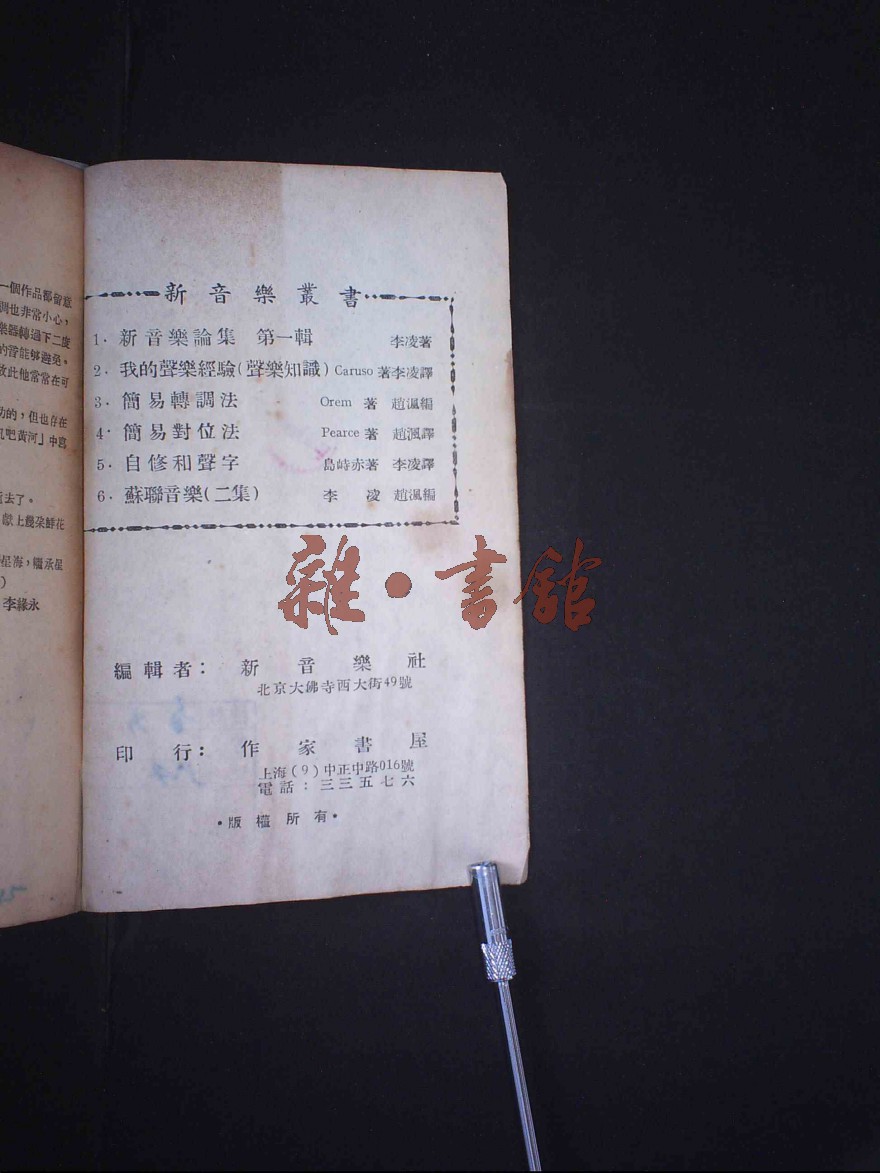 一個作品都留意
調也非常小心，
樂器轉過下二度
的音能够避免。
故此他常常在可
功的，但也存在
吼吧黃河」中寫
逝去了。
獻上幾朶鮮花
星海，繼承星
李緣永
新音樂叢書
1．新音樂論集 第一輯 李凌著
2．我的聲樂經驗(聲樂知識) Caruso 著李凌譯
3．簡易轉調法 Orem 著 趙渢編
4．簡易對位法 Pearce 著 趙渢譯
5．自修和聲字 島峙赤著 李凌譯
6．蘇聯音樂(二集) 李凌 趙渢編
雜·書館
編輯者：新音樂社
北京大佛寺西大街49號
印行：作家書屋
上海(9)中正中路016號
電話：三三五七六
·版權所有·